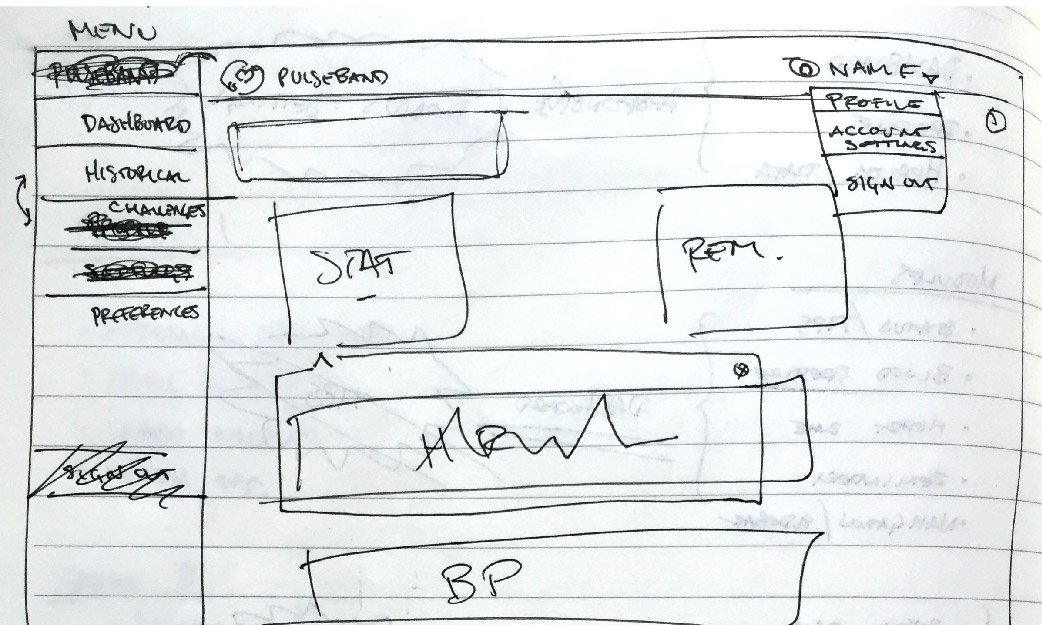 MENU
PULSEBAND
DASHBOARD
HISTORICAL
CHALLENGES
PROFILE
SETTINGS
PREFERENCES
SIGN OUT
PULSEBAND
NAME
PROFILE
ACCOUNT
SETTINGS
SIGN OUT
STAT
REM.
HR
BP